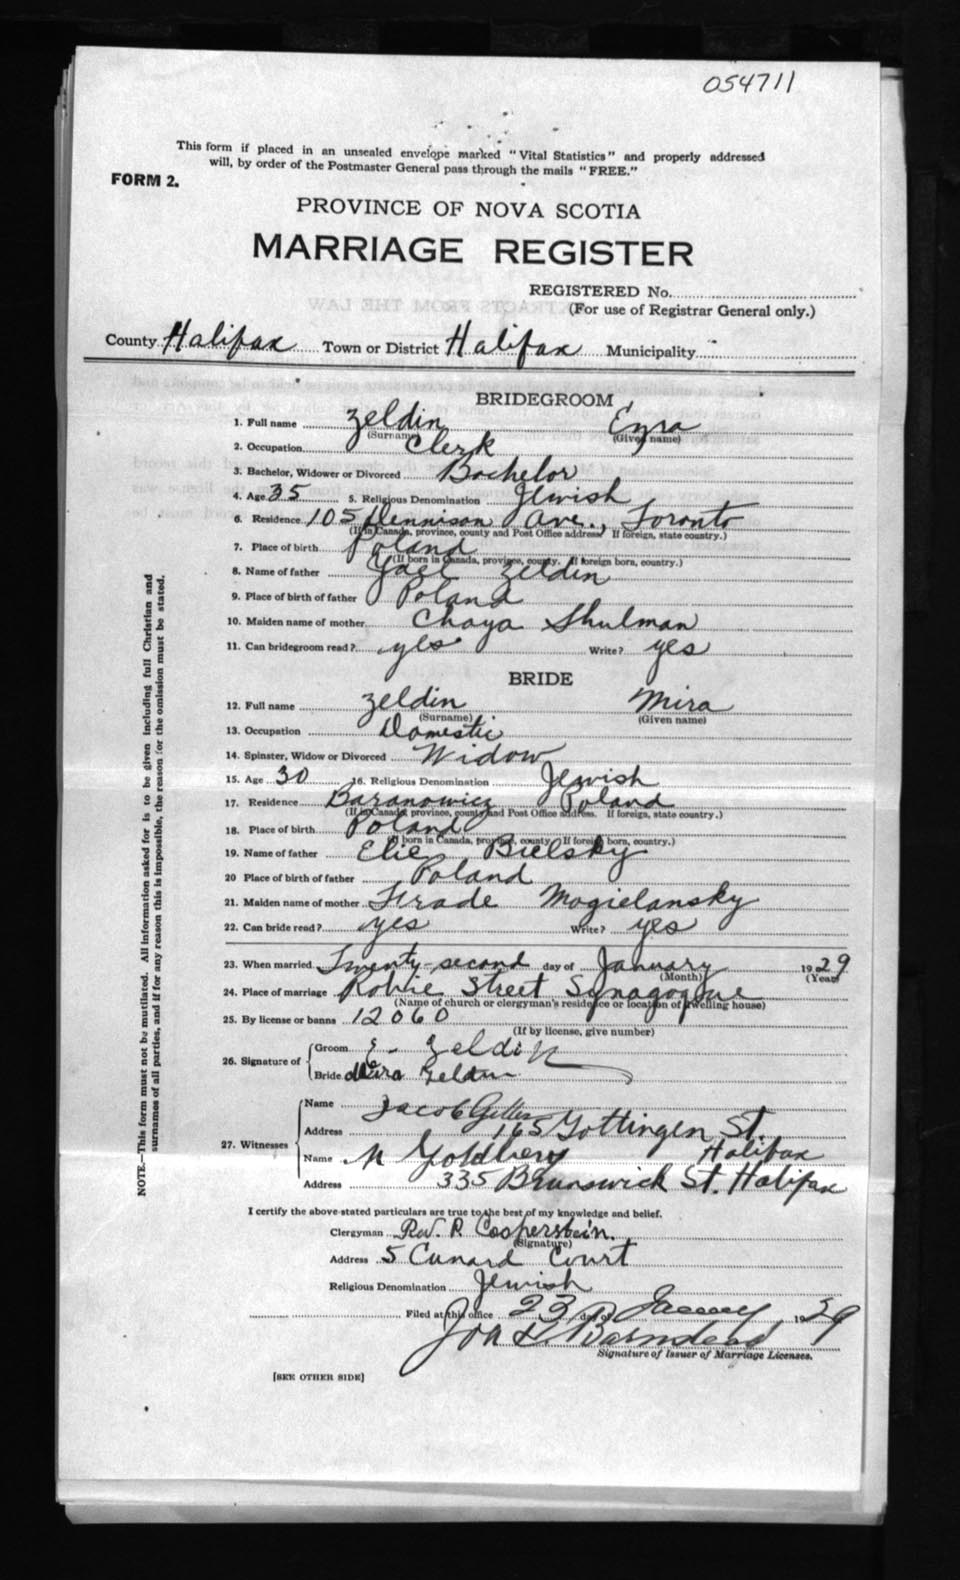 054711
This form if placed in an unsealed envelope marked "Vital Statistics" and properly addressed
will, by order of the Postmaster General pass through the mails "FREE."
FORM 2.
PROVINCE OF NOVA SCOTIA
MARRIAGE REGISTER
REGISTERED No.
(For use of Registrar General only.)
County Halifax Town or District Halifax Municipality
BRIDEGROOM
1. Full name Zeldin Ezra
(Surname) (Given name)
2. Occupation Clerk
3. Bachelor, Widower or Divorced Bachelor
4. Age 35 5. Religious Denomination Jewish
6. Residence 105 Dennison Ave., Toronto
(If in Canada, province, county and Post Office address. If foreign, state country.)
7. Place of birth Poland
(If born in Canada, province, county. If foreign born, country.)
8. Name of father Zeldin
9. Place of birth of father Poland
10. Maiden name of mother Chaya Shulman
11. Can bridegroom read? yes Write? yes
BRIDE
12. Full name Zeldin Mira
(Surname) (Given name)
13. Occupation Domestic
14. Spinster, Widow or Divorced Widow
15. Age 30 16. Religious Denomination Jewish
17. Residence Baranowicz Poland
(If in Canada, province, county and Post Office address. If foreign, state country.)
18. Place of birth Poland
(If born in Canada, province, county. If foreign born, country.)
19. Name of father Elie Bielsky
20 Place of birth of father Poland
21. Maiden name of mother Frade Mogielansky
22. Can bride read? yes Write? yes
23. When married Twenty-second day of January 1929
(Month) (Year)
24. Place of marriage Robie Street Synagogue
(Name of church or clergyman's residence or location of dwelling house)
25. By license or banns 12060
(If by license, give number)
26. Signature of Groom E. Zeldin
Bride Mira Zeldin
27. Witnesses
Name Jacob
Address 165 Gottingen St.
Halifax
Name M Goldberg
Address 335 Brunswick St. Halifax
I certify the above-stated particulars are true to the best of my knowledge and belief.
Clergyman Rev. P. Cooperstein.
(Signature)
Address 5 Cunard Court
Religious Denomination Jewish
Filed at this office 23 day of January 1929
Barnstead
Signature of Issuer of Marriage Licenses.
[SEE OTHER SIDE]
NOTE.—This form must not be mutilated. All information asked for is to be given including full Christian and
surnames of all parties, and if for any reason this is impossible, the reason for the omission must be stated.